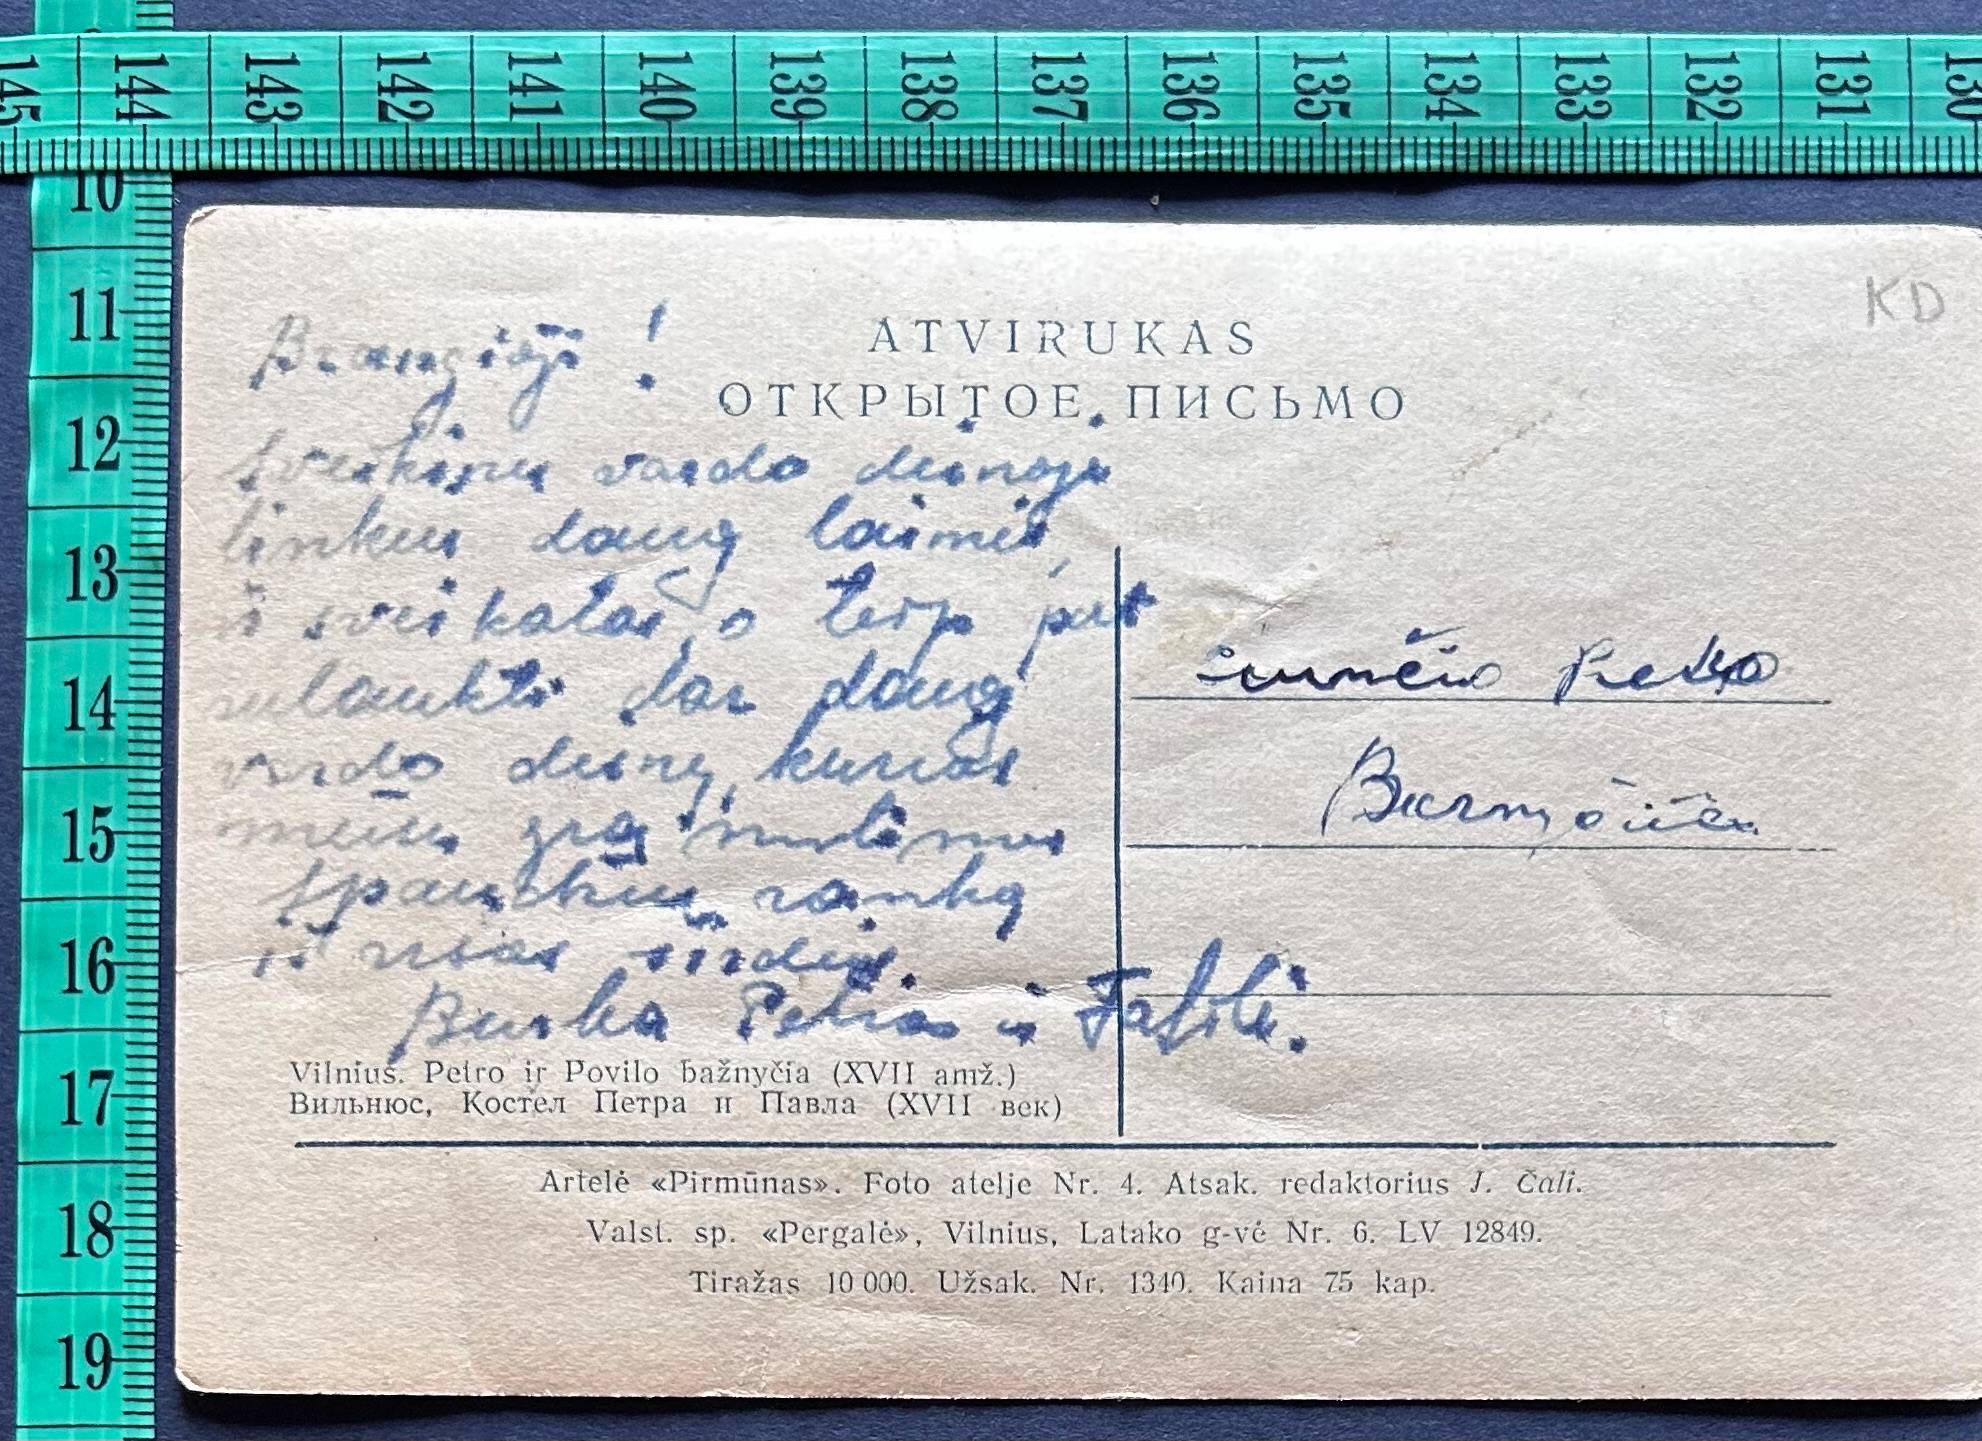 145 144 143 142 141 140 139 138 137 136 135 134 133 132 131 130
10
11
12
13
14
15
16
17
18
19
KD
ATVIRUKAS
ОТКРЫТОЕ ПИСЬМО
Brangieji!
Sveikinu vardo dienoje
linkiu daug laimės,
ir sveikatos, o teip pat
sulaukti dar daug
vardo dienų, kurias
mums
spaudžiu ranką
iš visos širdies.
Petras ir
siunčia
Vilnius. Petro ir Povilo bažnyčia (XVII amž.)
Вильнюс, Костел Петра и Павла (XVII век)
Artelė «Pirmūnas». Foto atelje Nr. 4. Atsak. redaktorius J. Čali.
Valst. sp. «Pergalė», Vilnius, Latako g-vė Nr. 6. LV 12849.
Tiražas 10 000. Užsak. Nr. 1340. Kaina 75 kap.